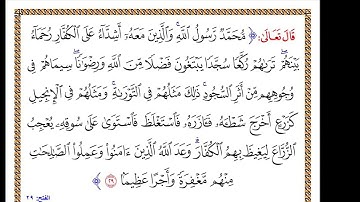 قَالَ تَعَالَىٰ: ﴿ مُّحَمَّدٌ رَّسُولُ ٱللَّهِ ۚ وَٱلَّذِينَ مَعَهُۥٓ أَشِدَّآءُ عَلَى ٱلْكُفَّارِ رُحَمَآءُ
بَيْنَهُمْ ۖ تَرَىٰهُمْ رُكَّعًا سُجَّدًا يَبْتَغُونَ فَضْلًا مِّنَ ٱللَّهِ وَرِضْوَٰنًا ۖ سِيمَاهُمْ فِى
وُجُوهِهِم مِّنْ أَثَرِ ٱلسُّجُودِ ۚ ذَٰلِكَ مَثَلُهُمْ فِى ٱلتَّوْرَىٰةِ ۚ وَمَثَلُهُمْ فِى ٱلْإِنجِيلِ
كَزَرْعٍ أَخْرَجَ شَطْـَٔهُۥ فَـَٔازَرَهُۥ فَٱسْتَغْلَظَ فَٱسْتَوَىٰ عَلَىٰ سُوقِهِۦ يُعْجِبُ
ٱلزُّرَّاعَ لِيَغِيظَ بِهِمُ ٱلْكُفَّارَ ۗ وَعَدَ ٱللَّهُ ٱلَّذِينَ ءَامَنُوا۟ وَعَمِلُوا۟ ٱلصَّٰلِحَٰتِ
مِنْهُم مَّغْفِرَةً وَأَجْرًا عَظِيمًۢا ٢٩ ﴾
الفتح: ٢٩